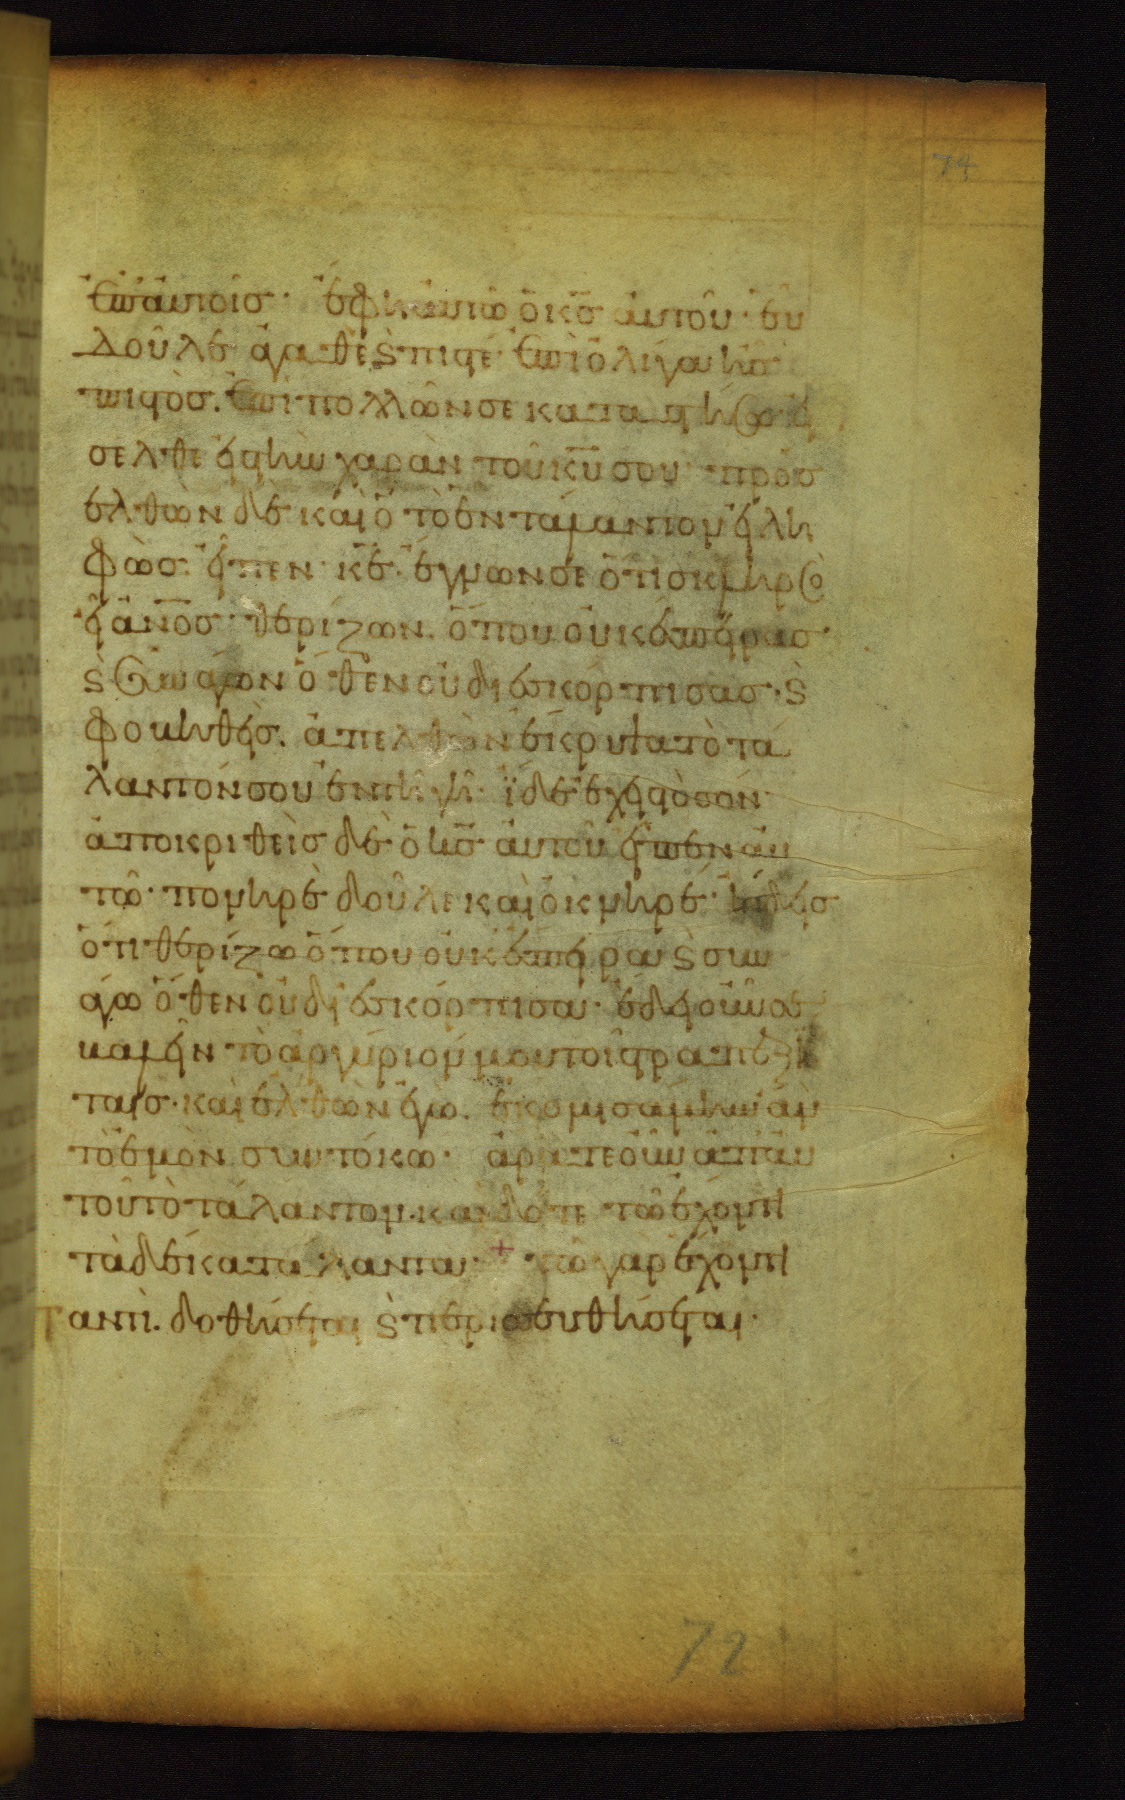 74
ἐπ' αὐτοῖς· ἔφη αὐτῶ ὁ κ̅ς̅ αὐτοῦ· εὖ
δοῦλε ἀγαθὲ ϗ πιστέ· ἐπὶ ὀλίγα ἦς
πιστός. ἐπὶ πολλῶν σε καταστήσω· εἴ
σελθε εἰς τὴν χαρὰν τοῦ κ̅υ̅ σου· προσ
ελθὼν δὲ καὶ ὁ τὸ ἓν τάλαντον εἰλη
φὼς· εἶπεν· κ̅ε̅· ἔγνων σε ὅτι σκληρὸς
εἶ ἄν̅ο̅ς· θερίζων ὅπου οὐκ ἔσπειρας·
ϗ συνάγων ὅθεν οὐ διεσκόρπισας· ϗ
φοβηθεὶς. ἀπελθὼν ἔκρυψα τὸ τά
λαντόν σου ἐν τῆ γῆ· ἴδε ἔχεις τὸ σόν·
ἀποκριθεὶς δὲ ὁ κ̅ς̅ αὐτοῦ εἶπεν αὐ
τῶ· πονηρὲ δοῦλε καὶ ὀκνηρέ· ἤδεις
ὅτι θερίζω ὅπου οὐκ ἔσπειρα ϗ συν
άγω ὅθεν οὐ διεσκόρπισα· ἔδει οὖν σε
βαλεῖν τὸ ἀργύριόν μου τοῖς τραπεζί
ταις· καὶ ἐλθὼν ἐγὼ. ἐκομισάμην ἂν
τὸ ἐμὸν σὺν τόκω· ἄρατε οὖν ἀπ' αὐ
τοῦ τὸ τάλαντον· καὶ δότε τῶ ἔχοντι
τὰ δέκα τάλαντα· + τῶ γὰρ ἔχοντι
παντὶ. δοθήσεται ϗ περισσευθήσεται·
72